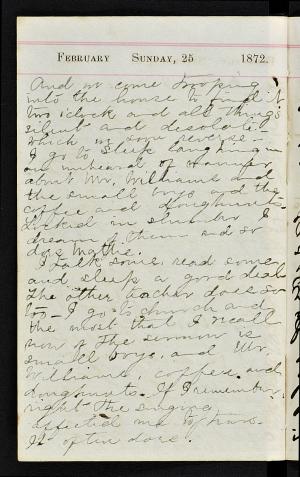 FEBRUARY SUNDAY, 25 1872.
And we come trooping
into the house to find it
two o'clock and all things
silent and desolate
which we soon reverse.
I go to sleep laughing in
an unheard of manner
about Mr. Williams and
the small boys and the
coffee and doughnuts.
Locked in slumber I
dream of them and so
does Mattie.
I talk some, read some,
and sleep a good deal
The other teacher does so
too - I go to church and
the most that I recall
now of the sermon is
small boys, and Mr.
Williams, coffee and
doughnuts. If I remember
right the singing
affected me to tears.
It often does.